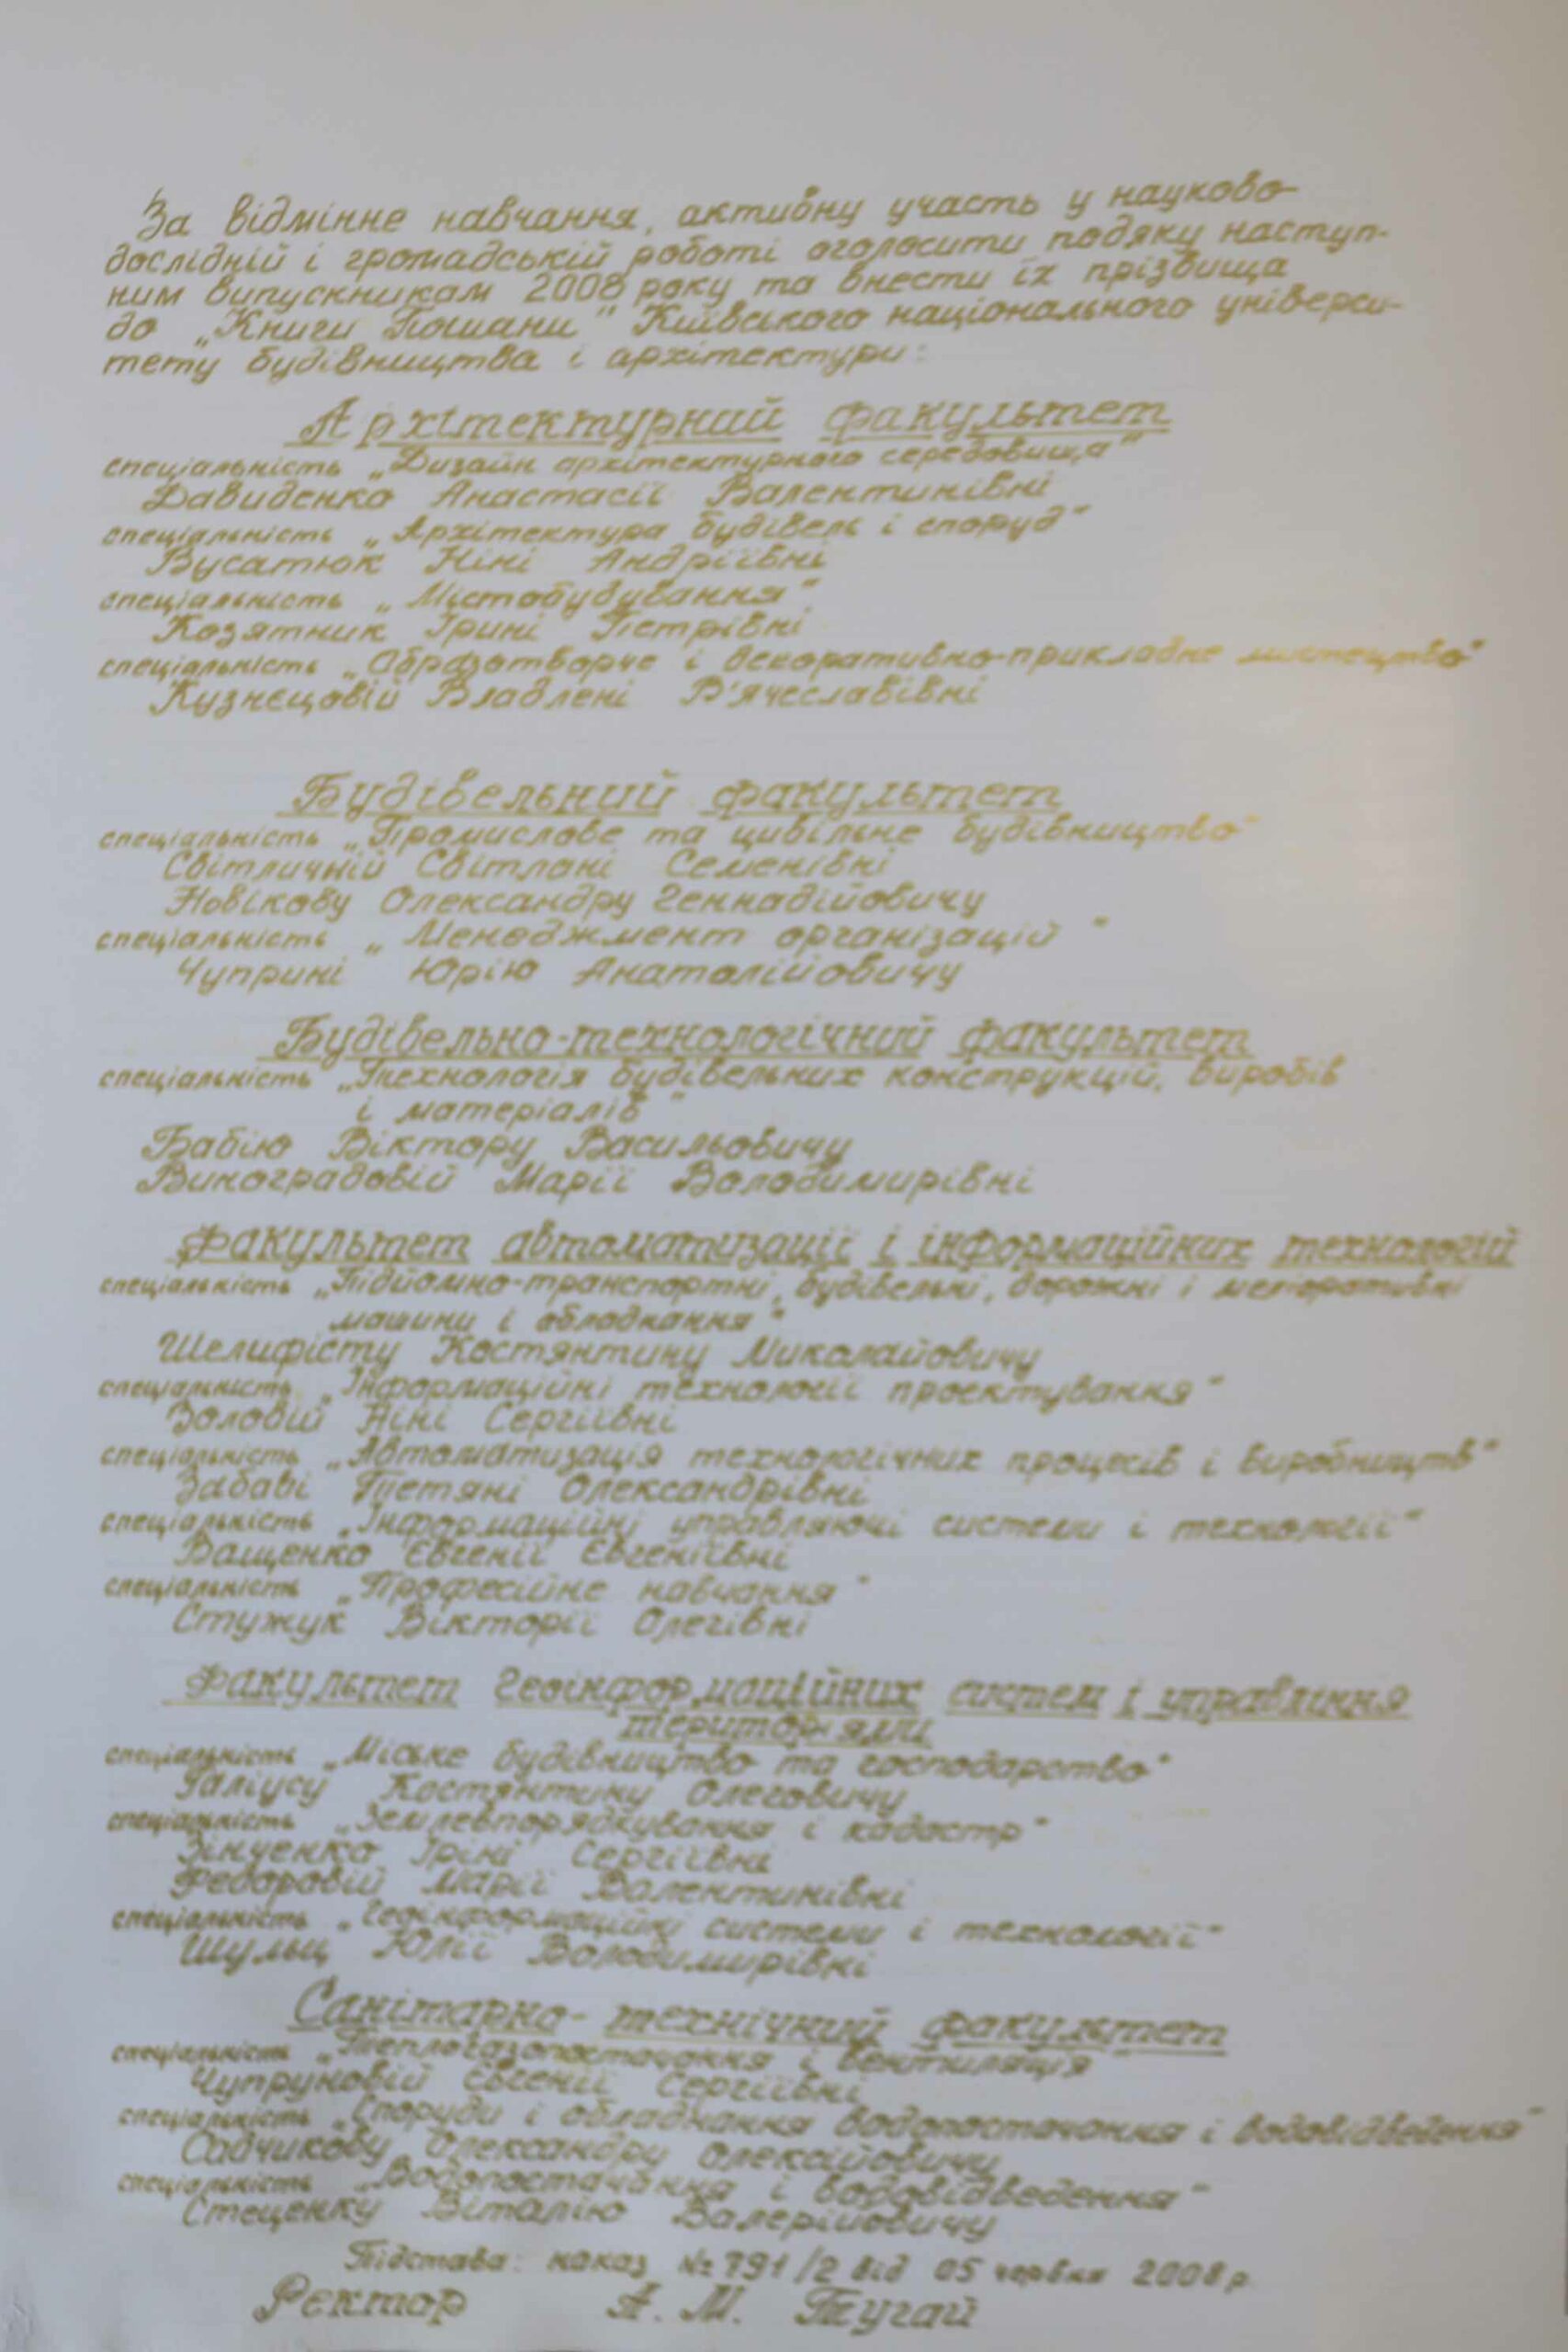 За відмінне навчання, активну участь у науково-
дослідній і громадській роботі оголосити подяку наступ-
ним випускникам 2008 року та внести їх прізвища
до „Книги Пошани" Київського національного універси-
тету будівництва і архітектури:
Архітектурний факультет
спеціальність „Дизайн архітектурного середовища"
Давиденко Анастасії Валентинівні
спеціальність „Архітектура будівель і споруд"
Вусатюк Ніні Андріївні
спеціальність „Містобудування"
Козятник Ірині Петрівні
спеціальність „Образотворче і декоративно-прикладне мистецтво"
Кузнєцовій Владлені В'ячеславівні
Будівельний факультет
спеціальність „Промислове та цивільне будівництво"
Світличній Світлані Семенівні
Новікову Олександру Геннадійовичу
спеціальність „Менеджмент організацій"
Чуприні Юрію Анатолійовичу
Будівельно-технологічний факультет
спеціальність „Технологія будівельних конструкцій, виробів
і матеріалів"
Бабію Віктору Васильовичу
Виноградовій Марії Володимирівні
Факультет автоматизації і інформаційних технологій
спеціальність „Підйомно-транспортні, будівельні, дорожні і меліоративні
машини і обладнання"
Шелифісту Костянтину Миколайовичу
спеціальність „Інформаційні технології проектування"
Ніні Сергіївні
спеціальність „Автоматизація технологічних процесів і виробництв"
Забаві Тетяні Олександрівні
спеціальність „Інформаційні управляючі системи і технології"
Ващенко Євгенії Євгеніївні
спеціальність „Професійне навчання"
Стужук Вікторії Олегівні
Факультет Геоінформаційних систем і управління
територіями
спеціальність „Міське будівництво та господарство"
Галіусу Костянтину Олеговичу
спеціальність „Землевпорядкування і кадастр"
Зінченко Іріні Сергіївні
Федоровій Марії Валентинівні
спеціальність „Геоінформаційні системи і технології"
Шульц Юлії Володимирівні
Санітарно-технічний факультет
спеціальність „Теплогазопостачання і вентиляція"
Чупруновій Євгенії Сергіївні
спеціальність „Споруди і обладнання водопостачання і водовідведення"
Садчикову Олександру Олексійовичу
спеціальність „Водопостачання і водовідведення"
Стеценку Віталію Валерійовичу
Підстава: наказ № 791/2 від 05 червня 2008 р.
Ректор А. М. Тугай